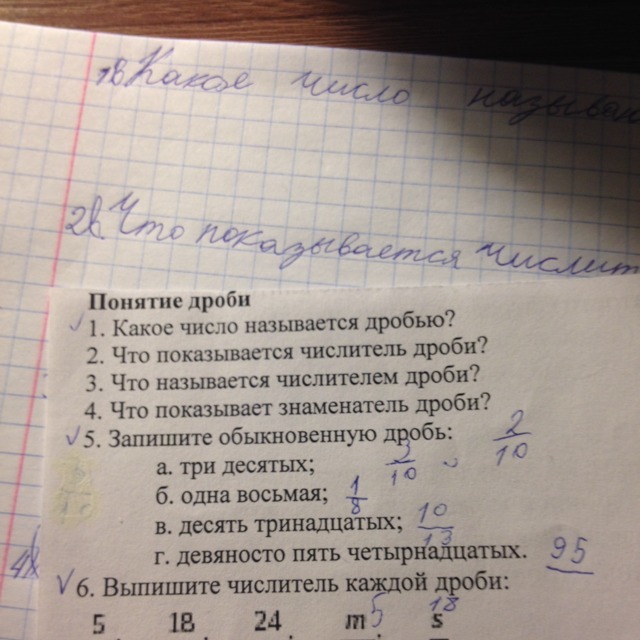 1в Какое число называ
2в. Что показывается числит
Понятие дроби
1. Какое число называется дробью?
2. Что показывается числитель дроби?
3. Что называется числителем дроби?
4. Что показывает знаменатель дроби?
5. Запишите обыкновенную дробь: 2/10
а. три десятых; 3/10
б. одна восьмая; 1/8
в. десять тринадцатых; 10/13
г. девяносто пять четырнадцатых. 95
6. Выпишите числитель каждой дроби:
5 18
5 18 24 m s